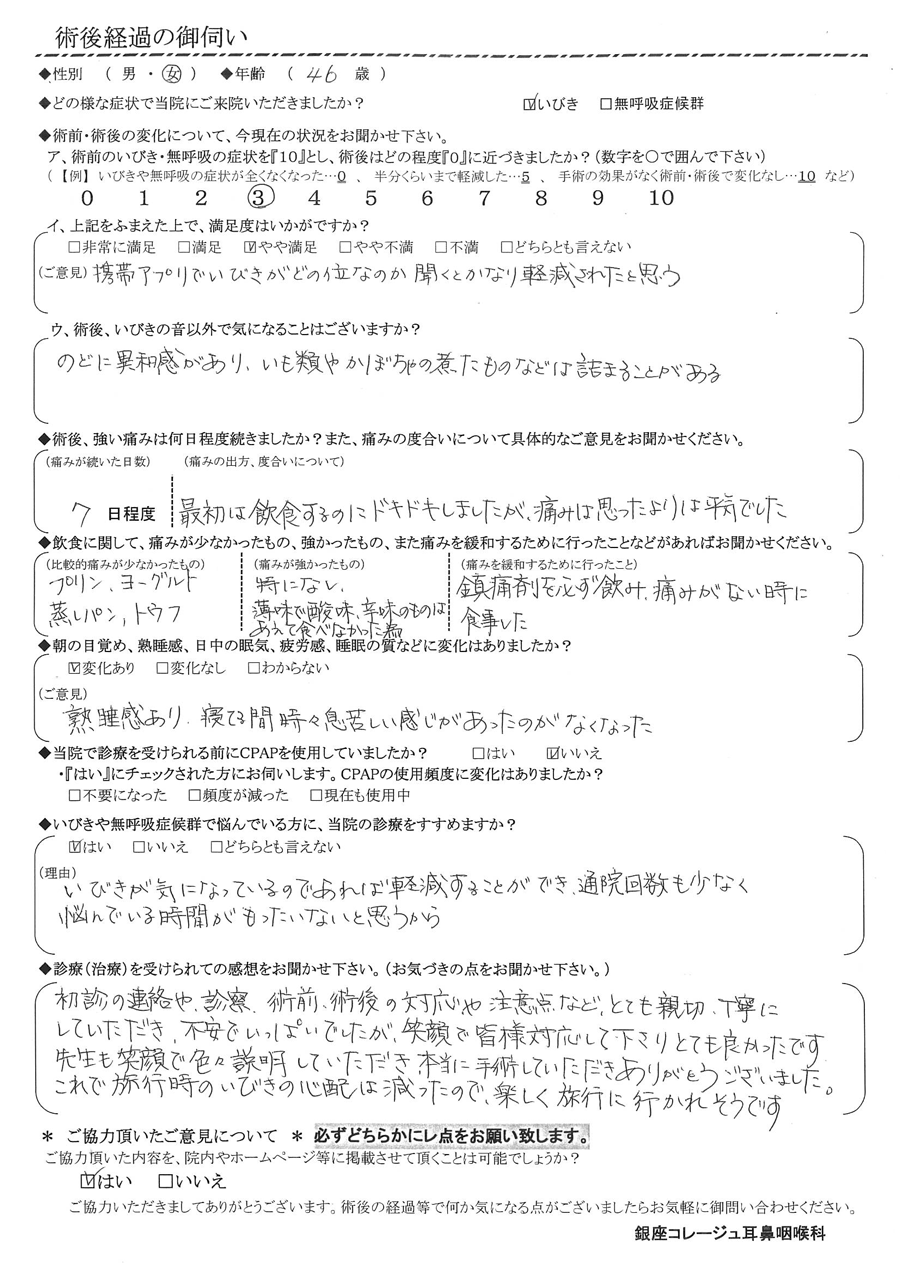 術後経過の御伺い
◆性別 ( 男 ・ 女 ) ◆年齢 ( 46 歳 )
◆どの様な症状で当院にご来院いただきましたか? ☑いびき □無呼吸症候群
◆術前・術後の変化について、今現在の状況をお聞かせ下さい。
ア、術前のいびき・無呼吸の症状を『10』とし、術後はどの程度『0』に近づきましたか?(数字を〇で囲んで下さい)
(【例】いびきや無呼吸の症状が全くなくなった…0 、 半分くらいまで軽減した…5 、 手術の効果がなく術前・術後で変化なし…10 など)
0 1 2 3 4 5 6 7 8 9 10
イ、上記をふまえた上で、満足度はいかがですか?
□非常に満足 □満足 ☑やや満足 □やや不満 □不満 □どちらとも言えない
(ご意見) 携帯アプリでいびきがどの位なのか 聞くとかなり軽減されたと思う
ウ、術後、いびきの音以外で気になることはございますか?
のどに異和感があり、いも類やかぼちゃの煮たものなどは詰まることがある
◆術後、強い痛みは何日程度続きましたか?また、痛みの度合いについて具体的なご意見をお聞かせください。
(痛みが続いた日数) (痛みの出方、度合いについて)
7 日程度 最初は飲食するのにドキドキしましたが、痛みは思ったよりは平気でした
◆飲食に関して、痛みが少なかったもの、強かったもの、また痛みを緩和するために行ったことなどがあればお聞かせください。
(比較的痛みが少なかったもの) (痛みが強かったもの) (痛みを緩和するために行ったこと)
プリン、ヨーグルト 特になし、 鎮痛剤を必ず飲み、痛みがない時に
蒸しパン、トウフ 薄味で酸味、辛味のものは 食事した
あえて食べなかった為
◆朝の目覚め、熟睡感、日中の眠気、疲労感、睡眠の質などに変化はありましたか?
☑変化あり □変化なし □わからない
(ご意見)
熟睡感あり、寝てる間時々息苦しい感じがあったのがなくなった
◆当院で診療を受けられる前にCPAPを使用していましたか? □はい ☑いいえ
・『はい』にチェックされた方にお伺いします。CPAPの使用頻度に変化はありましたか?
□不要になった □頻度が減った □現在も使用中
◆いびきや無呼吸症候群で悩んでいる方に、当院の診療をすすめますか?
☑はい □いいえ □どちらとも言えない
(理由)
いびきが気になっているのであれば軽減することができ、通院回数も少なく
悩んでいる時間がもったいないと思うから
◆診療(治療)を受けられての感想をお聞かせ下さい。(お気づきの点をお聞かせ下さい。)
初診の連絡や、診察、術前、術後の対応や注意点など、とても親切、丁寧に
していただき、不安でいっぱいでしたが、笑顔で皆様対応して下さりとても良かったです
先生も笑顔で色々説明していただき本当に手術していただきありがとうございました。
これで旅行時のいびきの心配は減ったので、楽しく旅行に行かれそうです
* ご協力頂いたご意見について * 必ずどちらかにレ点をお願い致します。
ご協力頂いた内容を、院内やホームページ等に掲載させて頂くことは可能でしょうか?
☑はい □いいえ
ご協力いただきましてありがとうございます。術後の経過等で何か気になる点がございましたらお気軽に御問い合わせください。
銀座コレージュ耳鼻咽喉科